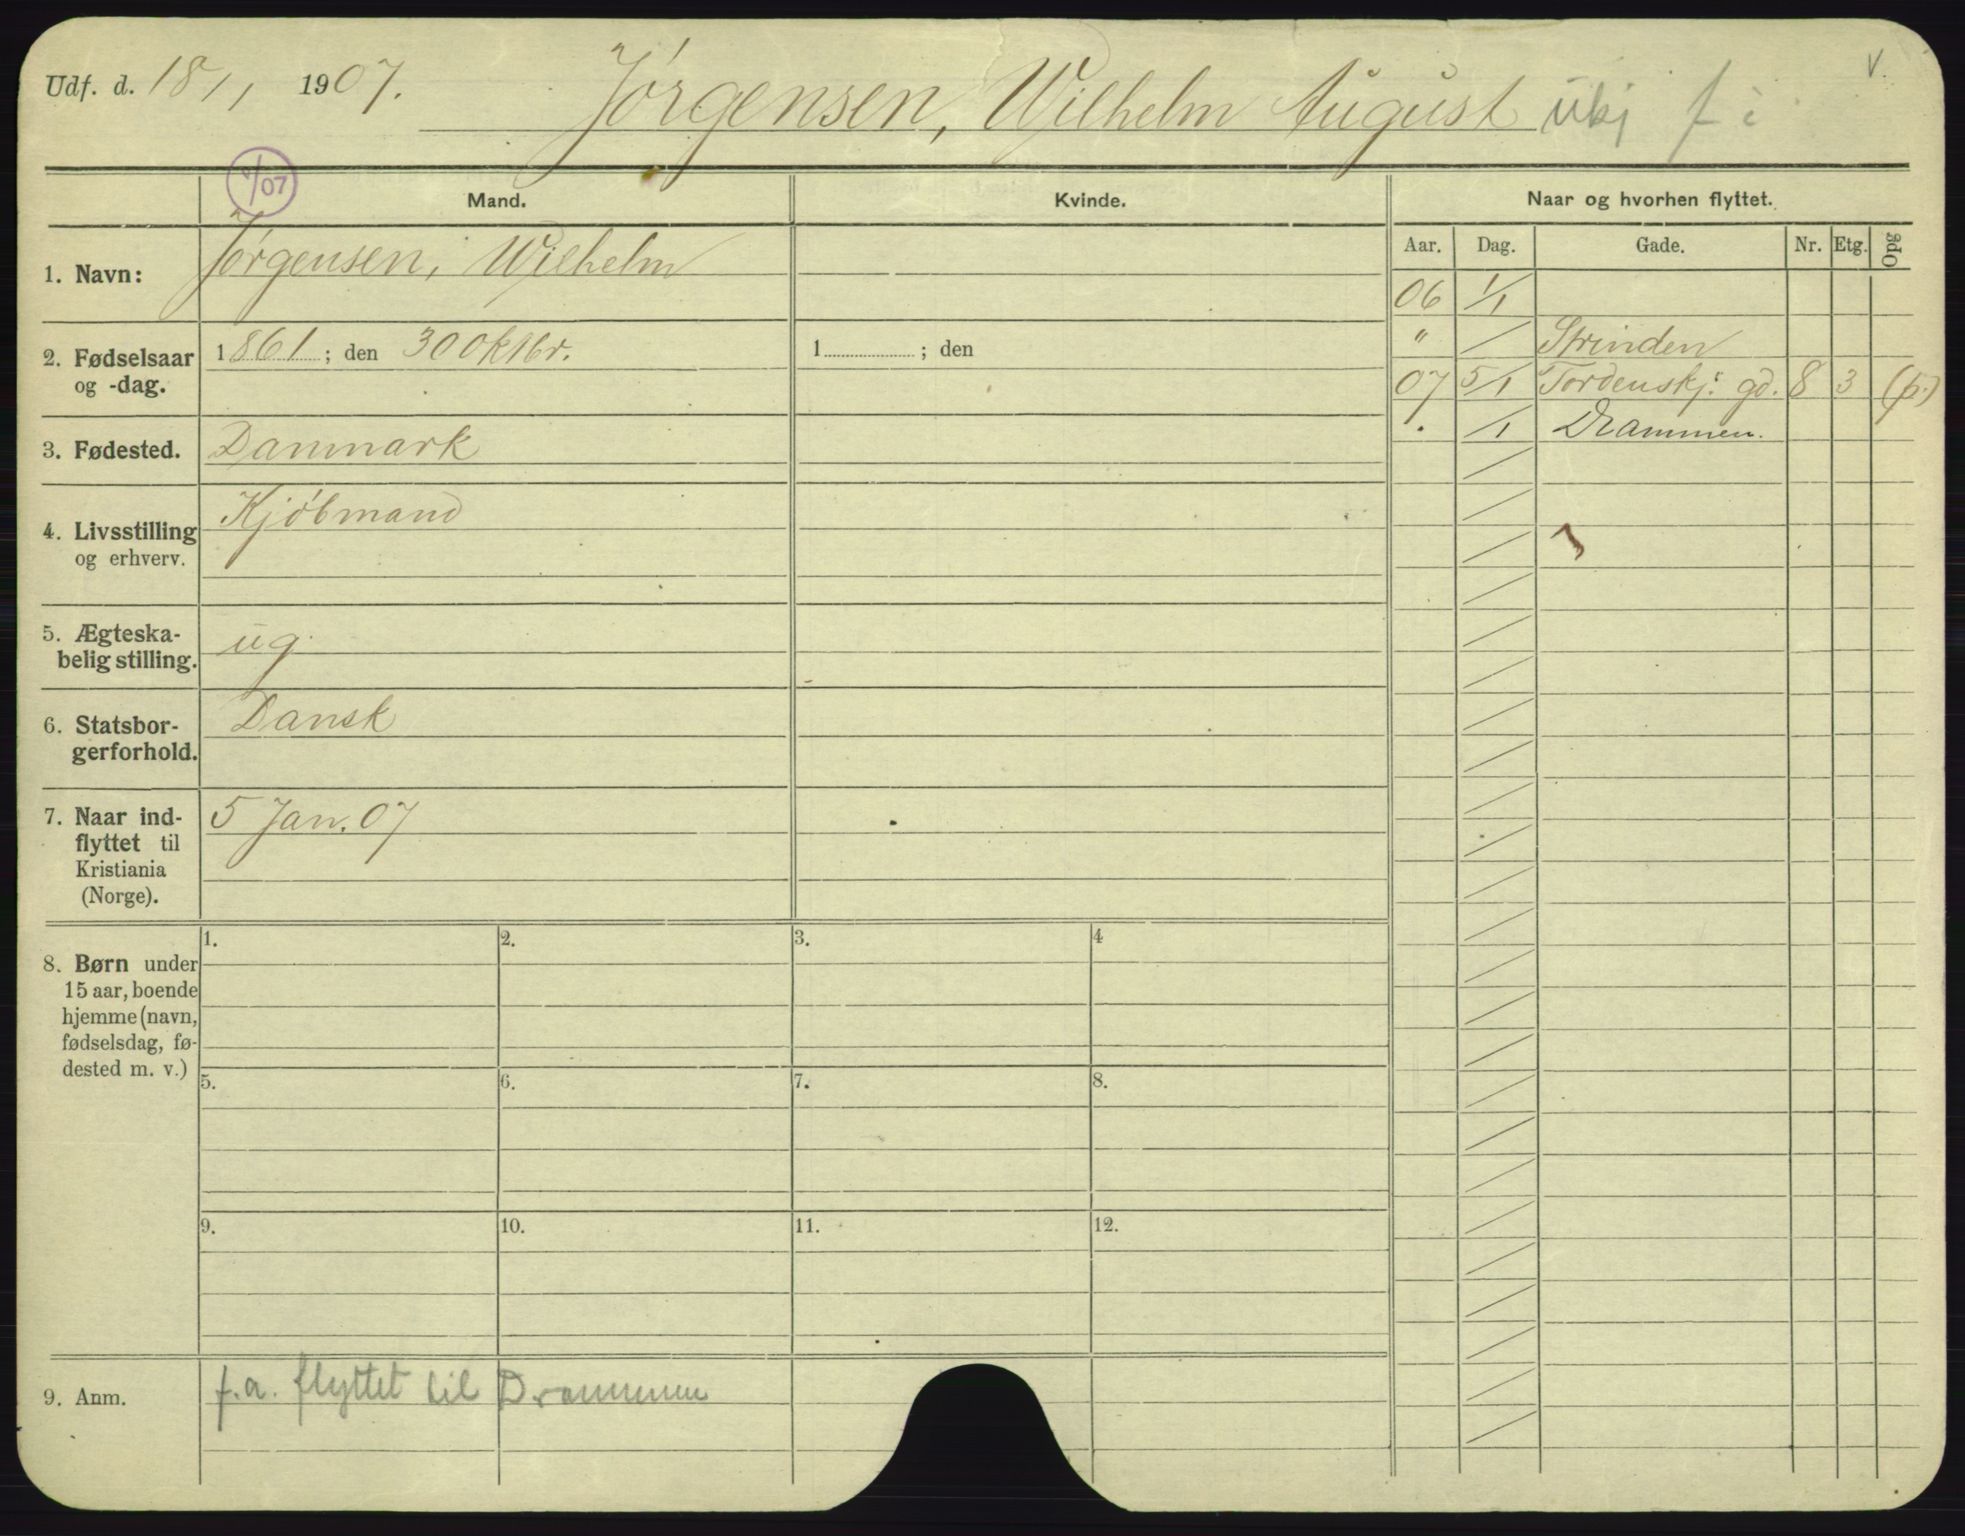 Udf. d. 18/1 1907.
Jörgensen, Wilhelm August ukj f i
V.
1/07
Mand.
Kvinde.
Naar og hvorhen flyttet.
Aar. Dag. Gade. Nr. Etg. Opg
1. Navn: Jörgensen, Wilhelm
06 1/1
" / Strinden
2. Fødselsaar og -dag. 1861; den 30 Oktbr.
1 ; den
07 5/1 Tordenskj.s gd. 8 3 (p.)
. /1 Drammen.
3. Fødested. Danmark
4. Livsstilling og erhverv. Kjöbmand
5. Ægteska-
belig stilling. ug.
6. Statsbor-
gerforhold. Dansk
7. Naar ind-
flyttet til
Kristiania
(Norge). 5 Jan. 07
8. Børn under
15 aar, boende
hjemme (navn,
fødselsdag, fø-
dested m. v.)
1. 2. 3. 4
5. 6. 7. 8.
9. 10. 11. 12.
9. Anm. f.a. flyttet til Drammen